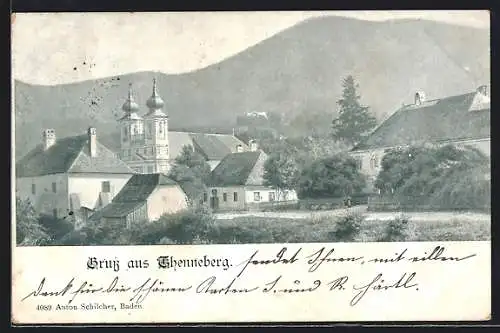 Gruß aus Thenneberg. sendet Ihnen mit vielen
Dank für die schönen Karten S. und R. Härtl.
4089 Anton Schilcher, Baden.